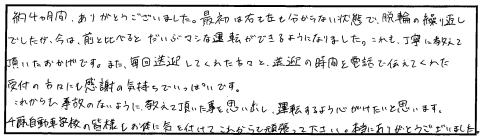 約4ヵ月間、ありがとうございました。最初は右も左も分からない状態で、脱輪の繰り返し
でしたが、今は、前と比べるとだいぶマシな運転ができるようになりました。これも、丁寧に教えて
頂いたおかげです。また、毎回送迎してくれた方々と、送迎の時間を電話で伝えてくれた
受付の方々にも感謝の気持ちでいっぱいです。
これからも事故のないように、教えて頂いた事を思い出し、運転するよう心がけたいと思います。
自動車学校の皆様もお体に気を付けてこれからも頑張って下さい。本当にありがとうございました